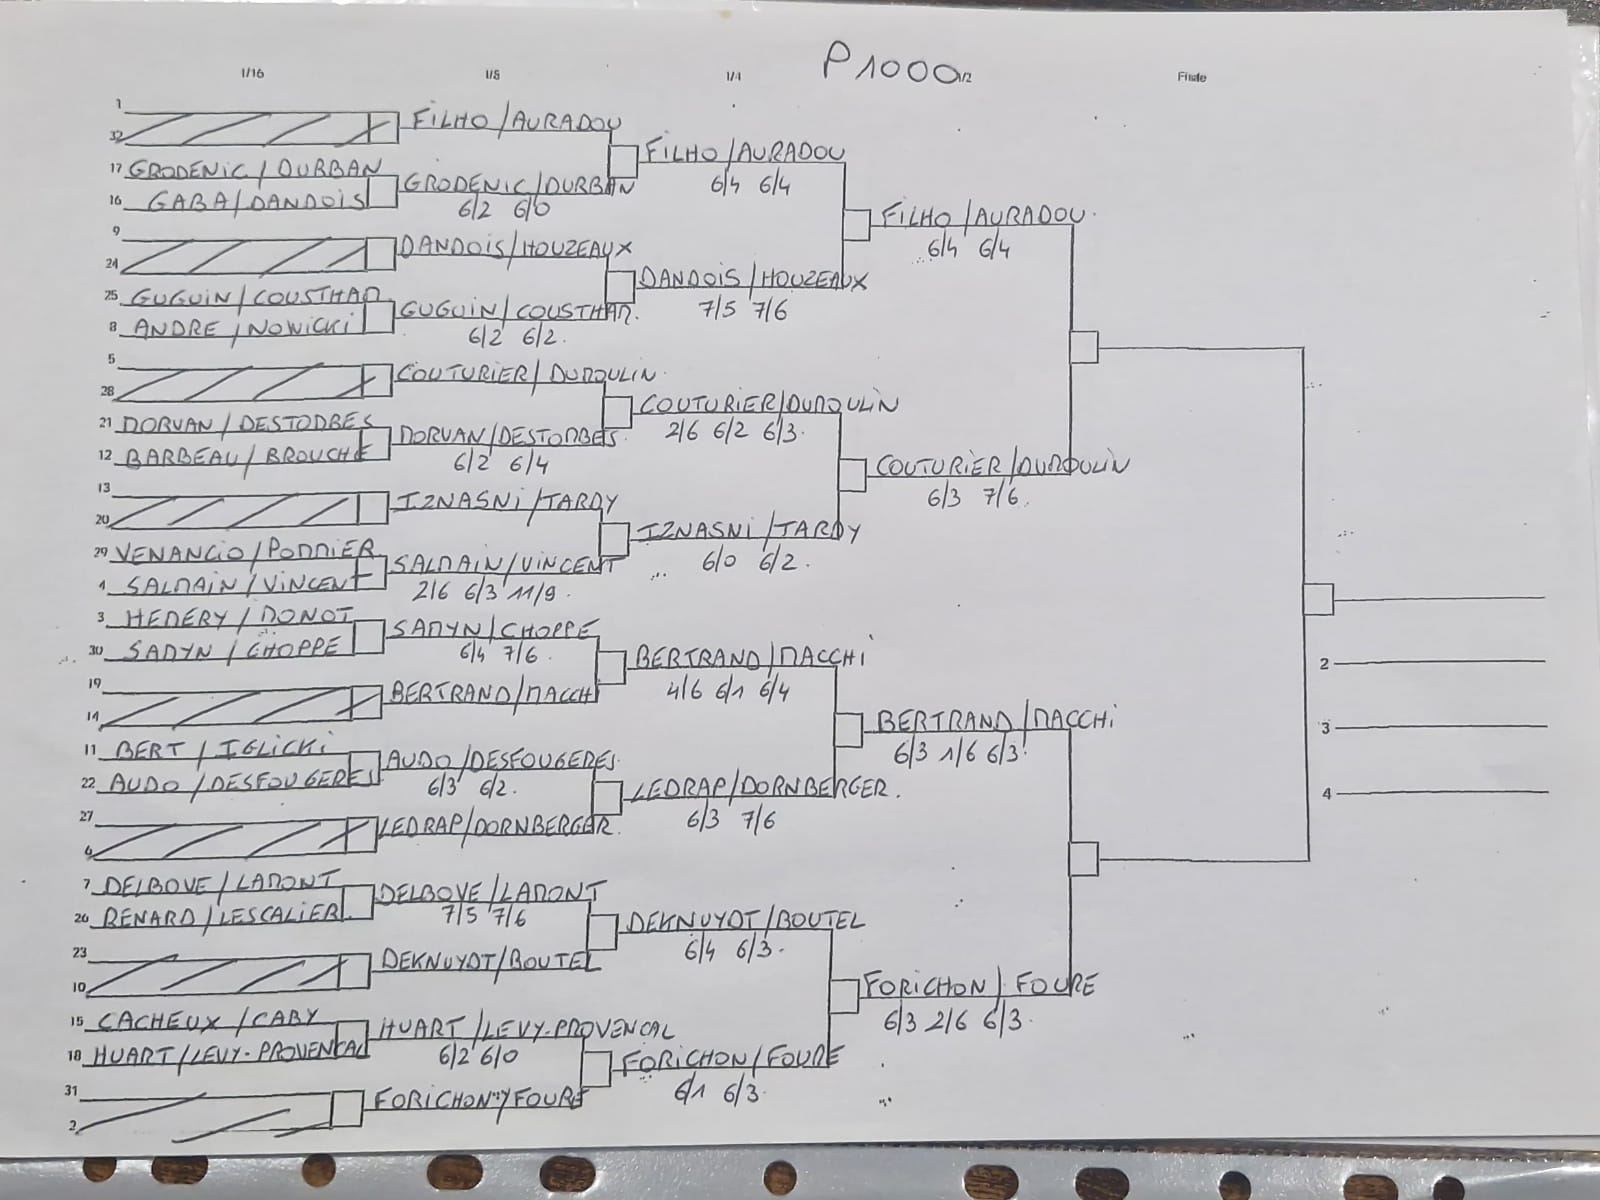 P1000
1/16 1/8 1/4 1/2 Finale
1
32
FILHO / AURADOU
17 GRODENIC / DURBAN
16 GABA / DANDOIS
GRODENIC / DURBAN
6/2 6/0
FILHO / AURADOU
6/4 6/4
9
24
DANDOIS / HOUZEAUX
25 GUGUIN / COUSTHAM
8 ANDRE / NOWICKI
GUGUIN / COUSTHAM.
6/2 6/2.
DANDOIS / HOUZEAUX
7/5 7/6
FILHO / AURADOU.
6/4 6/4
5
28
COUTURIER / DUMOULIN
21 DORVAN / DESTOMBES
12 BARBEAU / BROUCHE
DORVAN / DESTOMBES.
6/2 6/4
COUTURIER / DUMOULIN
2/6 6/2 6/3.
13
20
IZNASNI / TARDY
29 VENANCIO / POMMIER
4 SALMAIN / VINCENT
SALMAIN / VINCENT
2/6 6/3 11/9.
IZNASNI / TARDY
6/0 6/2.
COUTURIER / DUMOULIN
6/3 7/6.
3 HEMERY / MONOT
30 SAMYN / CHOPPE
SAMYN / CHOPPE
6/4 7/6.
19
14
BERTRAND / MACCHI
BERTRAND / MACCHI
4/6 6/1 6/4
11 BERT / IGLICKI
22 AUDO / DESFOUGERES
AUDO / DESFOUGERES.
6/3 6/2.
27
6
LEDRAP / DORNBERGER.
LEDRAP / DORNBERGER.
6/3 7/6
BERTRAND / MACCHI
6/3 1/6 6/3.
7 DELBOVE / LAMONT
26 RENARD / LESCALIER.
DELBOVE / LAMONT
7/5 7/6
23
10
DEKNUYDT / BOUTEL
DEKNUYDT / BOUTEL
6/4 6/3.
15 CACHEUX / CABY
18 HUART / LEVY-PROVENCAL
HUART / LEVY-PROVENCAL
6/2 6/0
31
2
FORICHON / FOURE
FORICHON / FOURE
6/1 6/3.
FORICHON / FOURE
6/3 2/6 6/3.
2
3
4